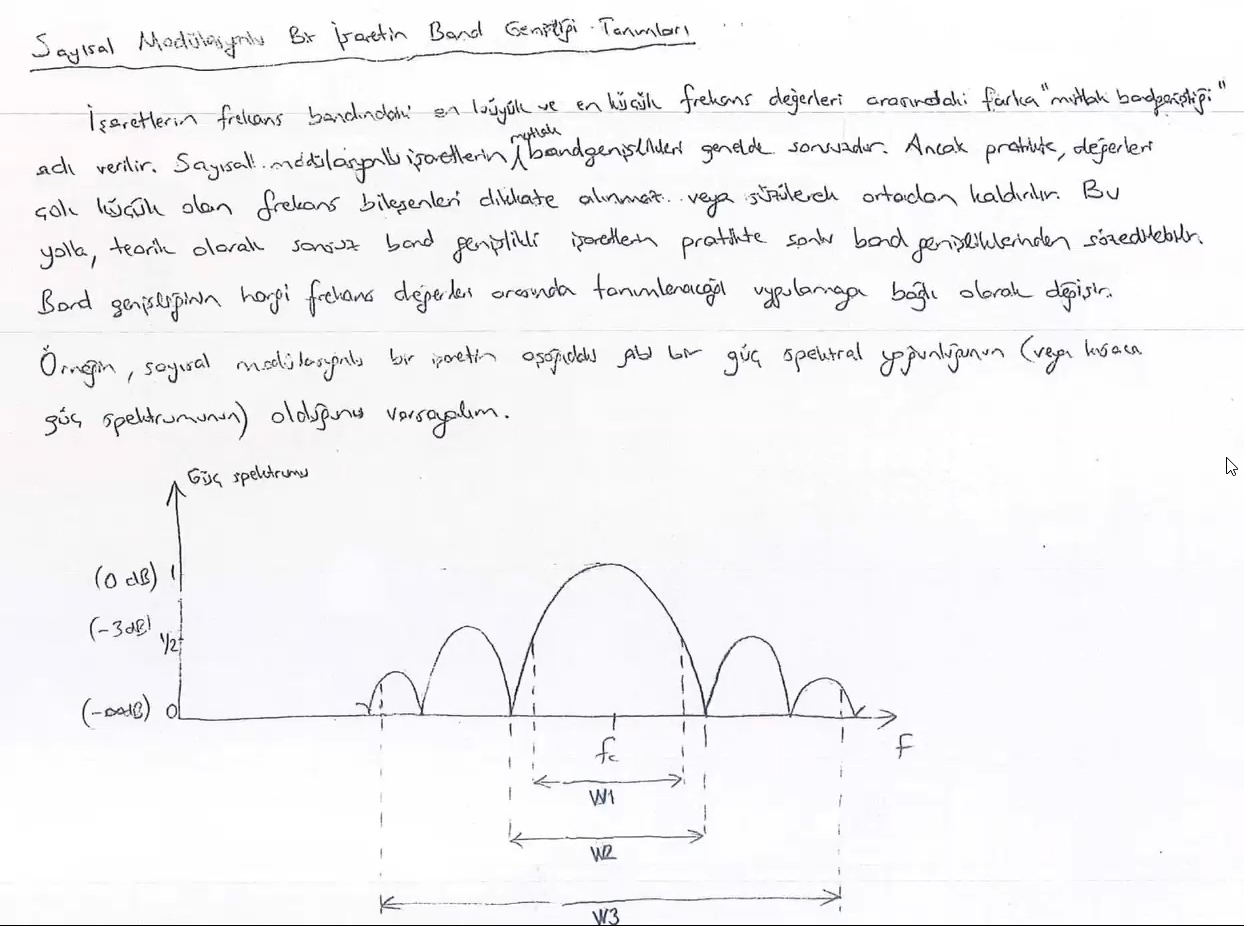 Sayısal Modülasyonlu Bir İşaretin Band Genişliği Tanımları
İşaretlerin frekans bandındaki en büyük ve en küçük frekans değerleri arasındaki farka "mutlak bandgenişliği"
adı verilir. Sayısal modülasyonlu işaretlerin mutlak bandgenişlikleri genelde sonsuzdur. Ancak pratikte, değerleri
çok küçük olan frekans bileşenleri dikkate alınmaz veya süzülerek ortadan kaldırılır. Bu
yolla, teorik olarak sonsuz band genişlikli işaretlerin pratikte sonlu band genişliklerinden sözedilebilir.
Band genişliğinin hangi frekans değerleri arasında tanımlanacağı uygulamaya bağlı olarak değişir.
Örneğin, sayısal modülasyonlu bir işaretin aşağıdaki gibi bir güç spektral yoğunluğunun (veya kısaca
güç spektrumunun) olduğunu varsayalım.
Güç spektrumu
(0 dB) 1
(-3dB) 1/2
(-∞dB) 0
fc
f
W1
W2
W3